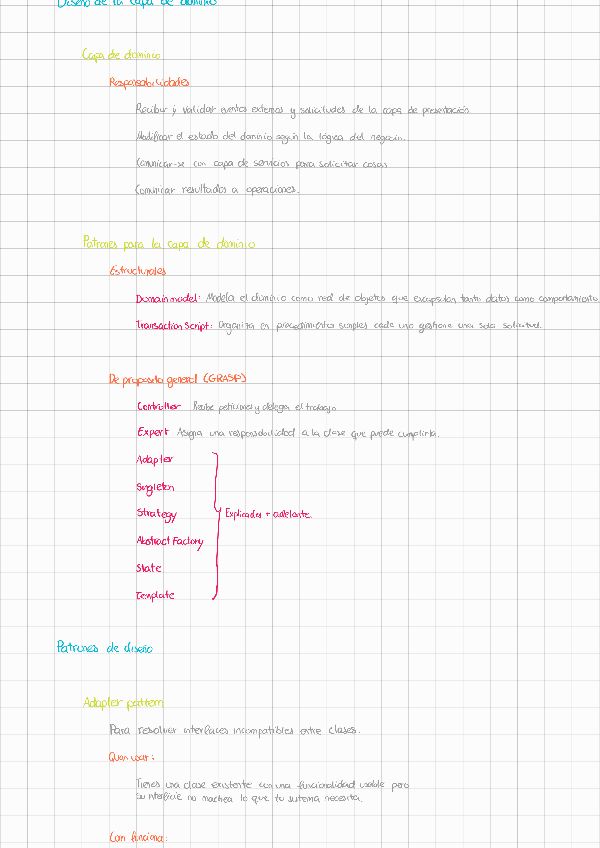 Diseño de la capa de dominio
Capa de dominio
Responsabilidades
Recibir y validar eventos externos y solicitudes de la capa de presentación
Modificar el estado del dominio según la lógica del negocio.
Comunicar-se con capa de servicios para solicitar cosas
Comunicar resultados a operaciones.
Patrones para la capa de dominio
Estructurales
Domain model: Modela el dominio como red de objetos que encapsulan tanto datos como comportamiento.
Transaction Script: Organiza en procedimientos simples cada uno gestiona una sola solicitud.
De proposito general (GRASP)
Controller Recibe peticiones y delega el trabajo
Expert Asigna una responsabilidad a la clase que puede cumplirla.
Adapter
Singleton
Strategy
Explicados + adelante.
Abstract Factory
State
Template
Patrones de diseño
Adapter pattern
Para resolver interfaces incompatibles entre clases.
Quan usar:
Tienes una clase existente con una funcionalidad usable pero
su interficie no machea lo que tu sistema necesita.
Com funciona: